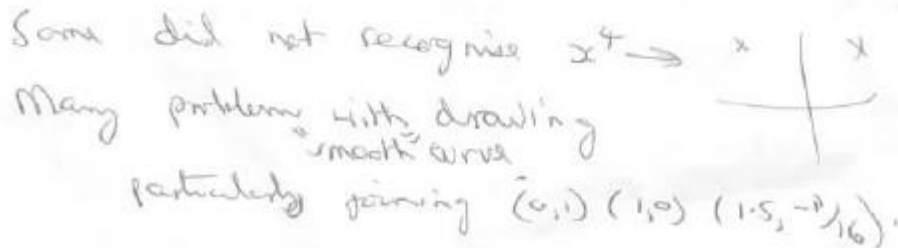 Some did not recognise x⁴ → x x
Many problem with drawing
"smooth" curve
particularly joining (0,1) (1,0) (1.5, -11/16).